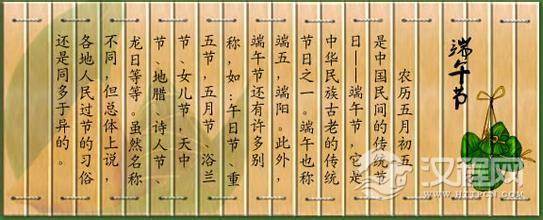 端午节
农历五月初五
是中国民间的传统节
日——端午节，它是
中华民族古老的传统
节日之一。端午也称
端五，端阳。此外，
端午节还有许多别
称，如：午日节、重
五节，五月节、浴兰
节、女儿节，天中
节、地腊、诗人节、
龙日等等。虽然名称
不同，但总体上说，
各地人民过节的习俗
还是同多于异的。
汉程网
HTTPCN.COM